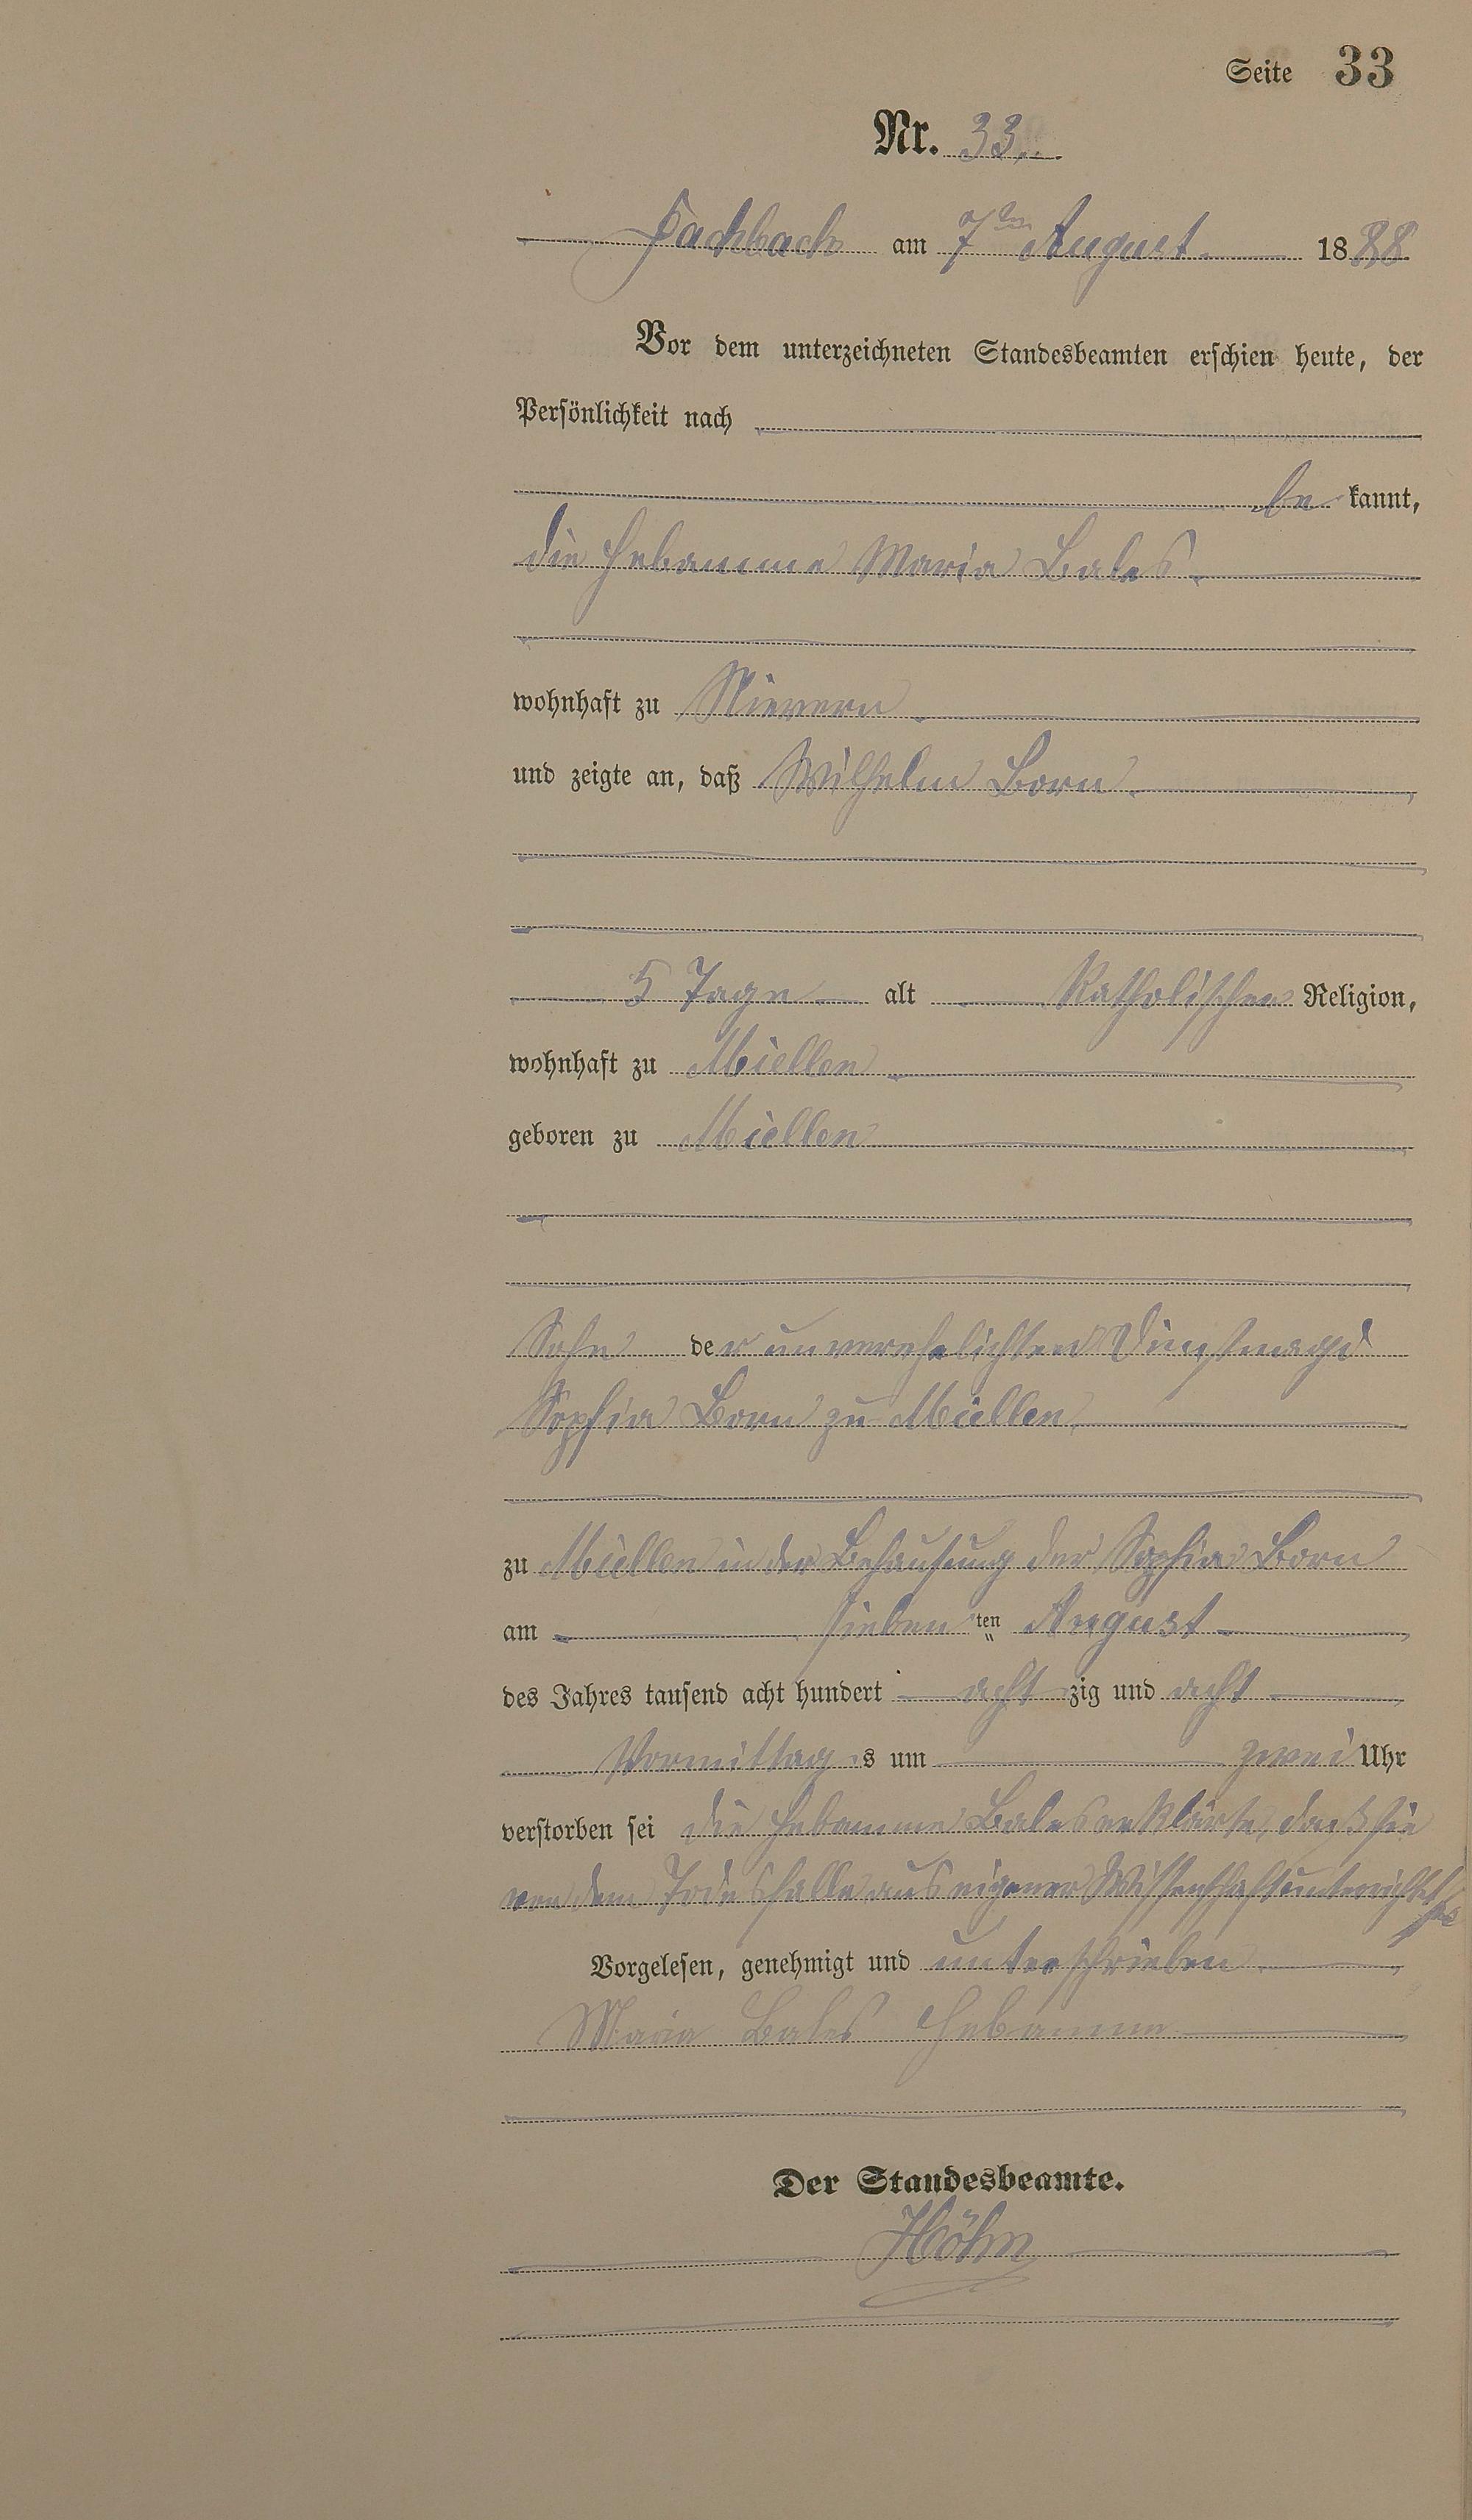 Seite 33
Nr. 33.
Fachbach am 7ten August. 1888.
Vor dem unterzeichneten Standesbeamten erschien heute, der
Persönlichkeit nach
be kannt,
die Hebamme Maria Bales.
wohnhaft zu Nievern
und zeigte an, daß Wilhelm Born.
5 Tage alt Katholischer Religion,
wohnhaft zu Miellen
geboren zu Miellen
Sohn der unverehelichten Dienstmagd
Sophia Born zu Miellen
zu Miellen in der Behausung der Sophia Born
am sieben ten August
des Jahres tausend acht hundert acht zig und acht
Vormittag s um zwei Uhr
verstorben sei die Hebamme Bales erklärte, daß sie
von dem Todesfalle aus eigener Wissenschaft unterrichtet sei
Vorgelesen, genehmigt und unterschrieben
Maria Bales Hebamme
Der Standesbeamte.
Höhn